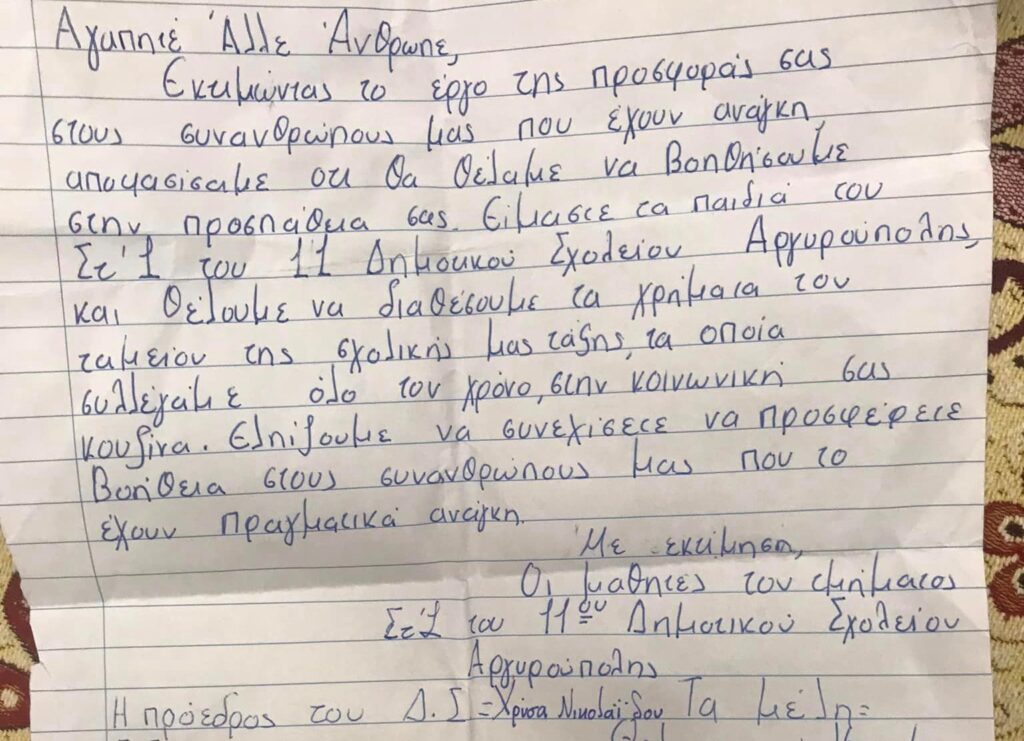 Αγαπητέ Άλλε Άνθρωπε,
Εκτιμώντας το έργο της προσφοράς σας
στους συνανθρώπους μας που έχουν ανάγκη,
αποφασίσαμε οτι θα θέλαμε να βοηθήσουμε
στην προσπάθεια σας. Είμαστε τα παιδιά του
Στ'1 του 11 Δημοτικού Σχολείου Αργυρούπολης,
και θέλουμε να διαθέσουμε τα χρήματα του
ταμείου της σχολικής μας τάξης, τα οποία
συλλέγαμε όλο τον χρόνο, στην κοινωνική σας
κουζίνα. Ελπίζουμε να συνεχίσετε να προσφέρετε
Βοήθεια στους συνανθρώπους μας που το
έχουν πραγματικά ανάγκη.
Με εκτίμηση,
Οι μαθητές του τμήματος
Στ'1 του 11ου Δημοτικού Σχολείου
Αργυρούπολης
Η πρόεδρος του Δ.Σ = Χρύσα Νικολαΐδου Τα μέλη =